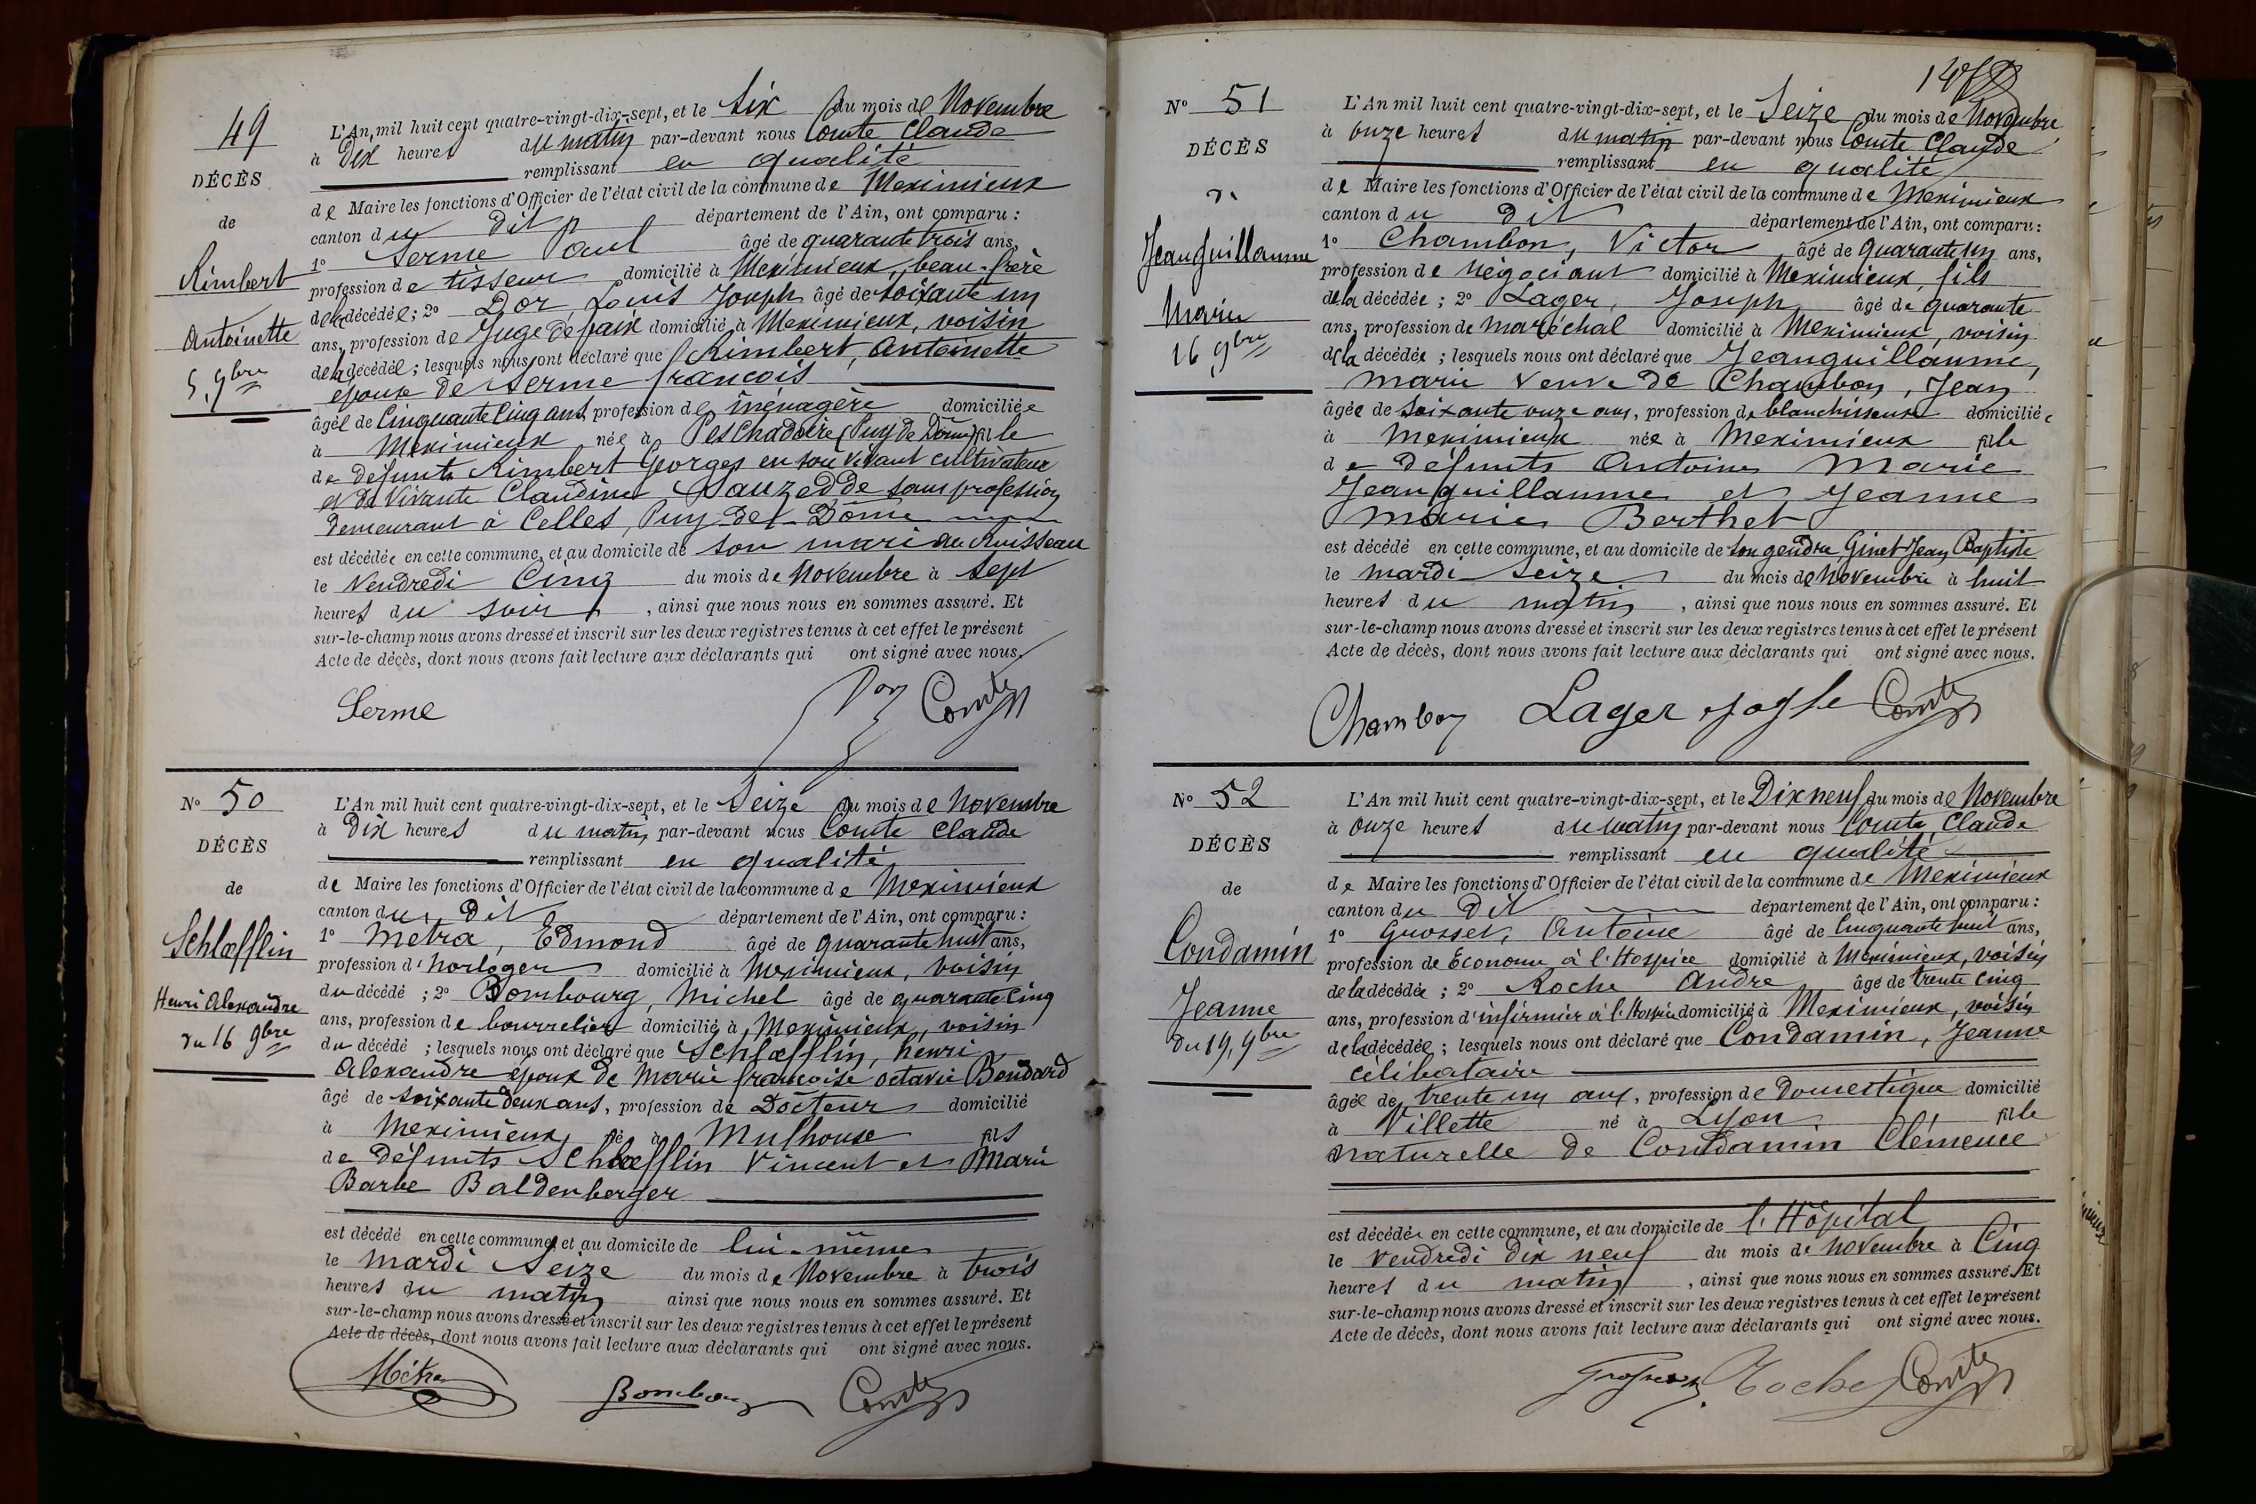 49
DÉCÈS
de
Rimbert
Antoinette
5, 9bre
L'An mil huit cent quatre-vingt-dix-sept, et le Six du mois de Novembre
à Dix heures du matin par-devant nous Comte Claude
remplissant en qualité
de Maire les fonctions d'Officier de l'état civil de la commune de Meximieux
canton du Dit département de l'Ain, ont comparu :
1° Serme Paul âgé de quarante trois ans,
profession de tisseur domicilié à Meximieux, beau-frère
de la décédée ; 2° Dor Louis Joseph âgé de soixante un
ans, profession de Juge de paix domicilié à Meximieux, voisin
de la décédée ; lesquels nous ont déclaré que Rimbert, Antoinette
épouse de Serme françois
âgée de Cinquante Cinq ans, profession de ménagère domiciliée
à Meximieux née à Peschadoire (Puy de Dôme) fille
de défunt Rimbert Georges en son vivant cultivateur
et de Vivante Claudine Sauzedde sans profession
demeurant à Celles, Puy-de-Dôme
est décédée en cette commune, et au domicile de son mari au Ruisseau
le Vendredi Cinq du mois de Novembre à sept
heures du soir , ainsi que nous nous en sommes assuré. Et
sur-le-champ nous avons dressé et inscrit sur les deux registres tenus à cet effet le présent
Acte de décès, dont nous avons fait lecture aux déclarants qui ont signé avec nous.
Serme Dor Comte
N° 50
DÉCÈS
de
Schlœfflin
Henri Alexandre
du 16 9bre
L'An mil huit cent quatre-vingt-dix-sept, et le Seize du mois de Novembre
à Dix heures du matin par-devant nous Comte Claude
remplissant en qualité
de Maire les fonctions d'Officier de l'état civil de la commune de Meximieux
canton du Dit département de l'Ain, ont comparu :
1° Metra, Edmond âgé de quarante huit ans,
profession d'horloger domicilié à Meximieux, voisin
du décédé ; 2° Bombourg, Michel âgé de quarante cinq
ans, profession de bourrelier domicilié à Meximieux, voisin
du décédé ; lesquels nous ont déclaré que Schlœfflin, henri
Alexandre époux de Marie françoise octavie Bondard
âgé de soixante deux ans, profession de Docteur domicilié
à Meximieux, né à Mulhouse fils
de défunts Schlœfflin Vincent et Marie
Barbe Baldenberger
est décédé en cette commune, et au domicile de lui-même
le mardi Seize du mois de Novembre à trois
heures du matin ainsi que nous nous en sommes assuré. Et
sur-le-champ nous avons dressé et inscrit sur les deux registres tenus à cet effet le présent
Acte de décès, dont nous avons fait lecture aux déclarants qui ont signé avec nous.
Métra Bombourg Comte
N° 51
DÉCÈS
Jeanguillaume
Marie
16 9bre
L'An mil huit cent quatre-vingt-dix-sept, et le Seize du mois de Novembre
à onze heures du matin par-devant nous Comte Claude
remplissant en qualité
de Maire les fonctions d'Officier de l'état civil de la commune de Meximieux
canton du Dit département de l'Ain, ont comparu :
1° Chambon, Victor âgé de quarante un ans,
profession de négociant domicilié à Meximieux, fils
de la décédée ; 2° Lager, Joseph âgé de quarante
ans, profession de maréchal domicilié à Meximieux, voisin
de la décédée ; lesquels nous ont déclaré que Jeanguillaume,
Marie veuve de Chambon, Jean
âgée de soixante onze ans, profession de blanchisseuse domiciliée
à Meximieux née à Meximieux fille
de défunts Antoine Marie
Jeanguillaume et Jeanne
Marie Berthet
est décédé en cette commune, et au domicile de son gendre Ginet Jean Baptiste
le mardi seize du mois de Novembre à huit
heures du matin , ainsi que nous nous en sommes assuré. Et
sur-le-champ nous avons dressé et inscrit sur les deux registres tenus à cet effet le présent
Acte de décès, dont nous avons fait lecture aux déclarants qui ont signé avec nous.
Chambon Lager Comte
N° 52
DÉCÈS
de
Condamin
Jeanne
du 19, 9bre
L'An mil huit cent quatre-vingt-dix-sept, et le Dix neuf du mois de Novembre
à onze heures du matin par-devant nous Comte Claude
remplissant en qualité
de Maire les fonctions d'Officier de l'état civil de la commune de Meximieux
canton du Dit département de l'Ain, ont comparu :
1° Grosset, Antoine âgé de Cinquante huit ans,
profession de Econome à l'Hospice domicilié à Meximieux, voisin
de la décédée ; 2° Roche André âgé de trente cinq
ans, profession d'infirmier à l'Hospice domicilié à Meximieux, voisin
de la décédée ; lesquels nous ont déclaré que Condamin, Jeanne
célibataire
âgée de trente un ans, profession de Domestique domicilié
à Villette né à Lyon fille
naturelle de Condamin Clémence
est décédée en cette commune, et au domicile de l'Hôpital
le vendredi dix neuf du mois de Novembre à Cinq
heures du matin , ainsi que nous nous en sommes assuré. Et
sur-le-champ nous avons dressé et inscrit sur les deux registres tenus à cet effet le présent
Acte de décès, dont nous avons fait lecture aux déclarants qui ont signé avec nous.
Roche Comte